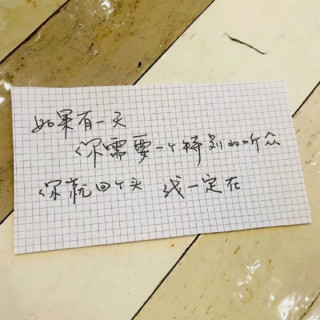 如果有一天
你需要一个特别的听众
你就回个头 我一定在